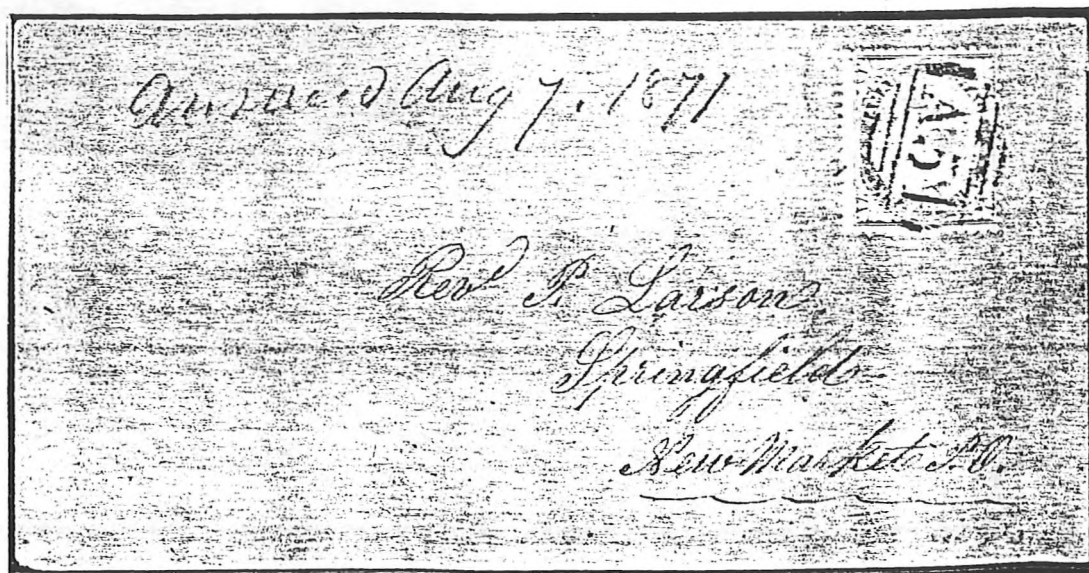 Answered Aug 7. 1871
A54
Revd P. Larson
Springfield
New Market P.O.